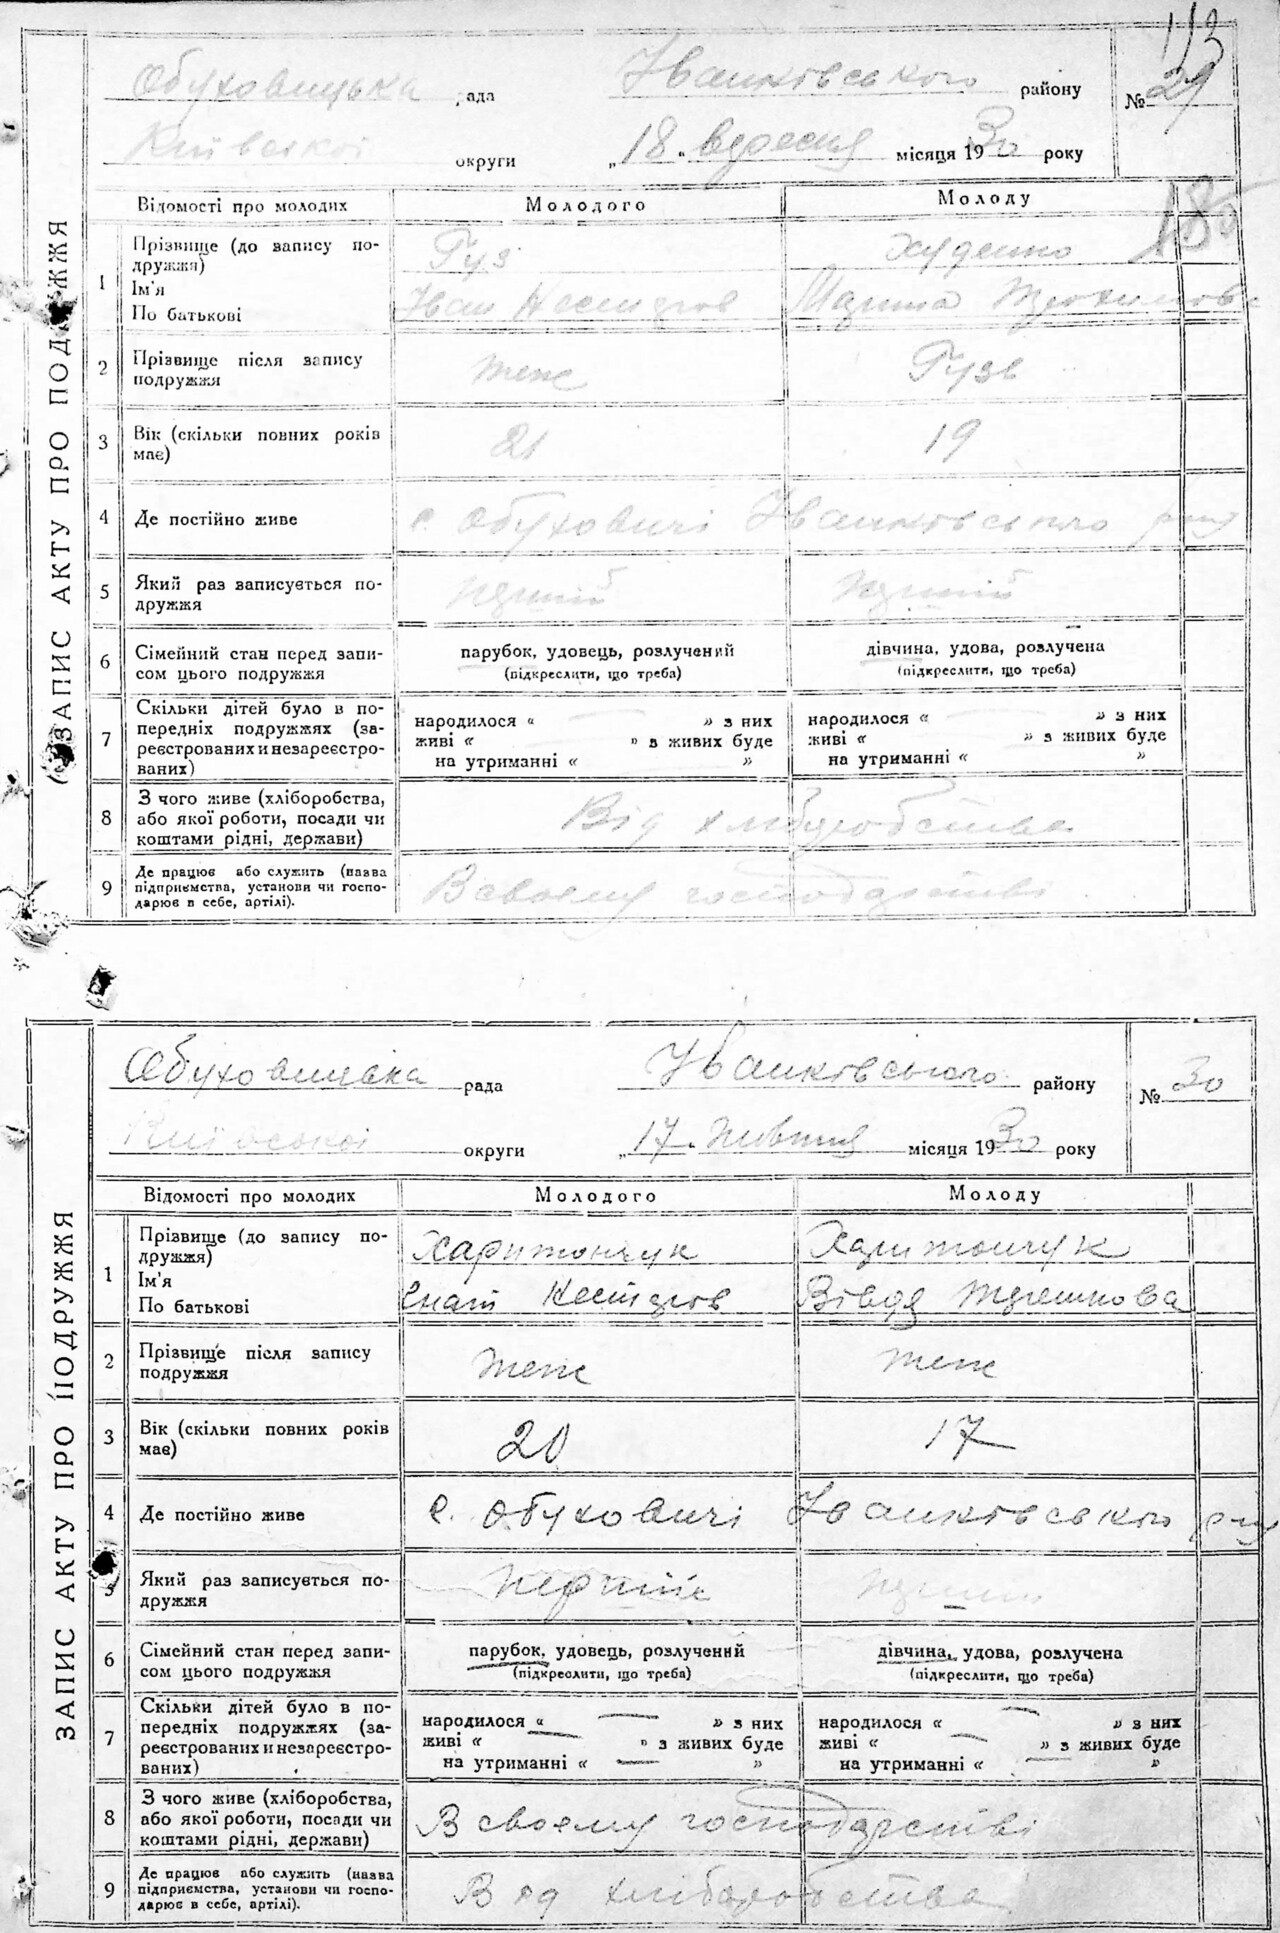 113
Обуховицька рада Іванківського району № 29
Київської округи „18„ вересня місяця 1930 року
185
ЗАПИС АКТУ ПРО ПОДРУЖЖЯ
Відомості про молодих Молодого Молоду
1 Прізвище (до запису по-
дружжя)
Ім'я
По батькові
Гуз Худенко
Іван Нестеров Марина Трохимов
2 Прізвище після запису
подружжя
теж Гузь
3 Вік (скільки повних років
має)
21 19
4 Де постійно живе с. Обуховичі Іванківського р-ну
5 Який раз записується по-
дружжя
перший перший
6 Сімейний стан перед запи-
сом цього подружжя
парубок, удовець, розлучений
(підкреслити, що треба)
дівчина, удова, розлучена
(підкреслити, що треба)
7 Скільки дітей було в по-
передніх подружжях (за-
реєстрованих и незареєстро-
ваних)
народилося “ — ” з них
живі “ — ” з живих буде
на утриманні “ ”
народилося “ — ” з них
живі “ — ” з живих буде
на утриманні “ ”
8 З чого живе (хліборобства,
або якої роботи, посади чи
коштами рідні, держави)
Від хліборобства
9 Де працює або служить (назва
підприємства, установи чи госпо-
дарює в себе, артілі).
В своєму господарстві
Обуховицька рада Іванківського району № 30
Київської округи „17„ жовтня місяця 1930 року
ЗАПИС АКТУ ПРО ПОДРУЖЖЯ
Відомості про молодих Молодого Молоду
1 Прізвище (до запису по-
дружжя)
Ім'я
По батькові
Харитончук Харитончук
Гнат Нестеров Вівдя Терешкова
2 Прізвище після запису
подружжя
теж теж
3 Вік (скільки повних років
має)
20 17
4 Де постійно живе с. Обуховичі Іванківського р-ну
5 Який раз записується по-
дружжя
перший перший
6 Сімейний стан перед запи-
сом цього подружжя
парубок, удовець, розлучений
(підкреслити, що треба)
дівчина, удова, розлучена
(підкреслити, що треба)
7 Скільки дітей було в по-
передніх подружжях (за-
реєстрованих и незареєстро-
ваних)
народилося “ — ” з них
живі “ — ” з живих буде
на утриманні “ — ”
народилося “ — ” з них
живі “ — ” з живих буде
на утриманні “ — ”
8 З чого живе (хліборобства,
або якої роботи, посади чи
коштами рідні, держави)
В своєму господарстві
9 Де працює або служить (назва
підприємства, установи чи госпо-
дарює в себе, артілі).
Вєд хліборобства